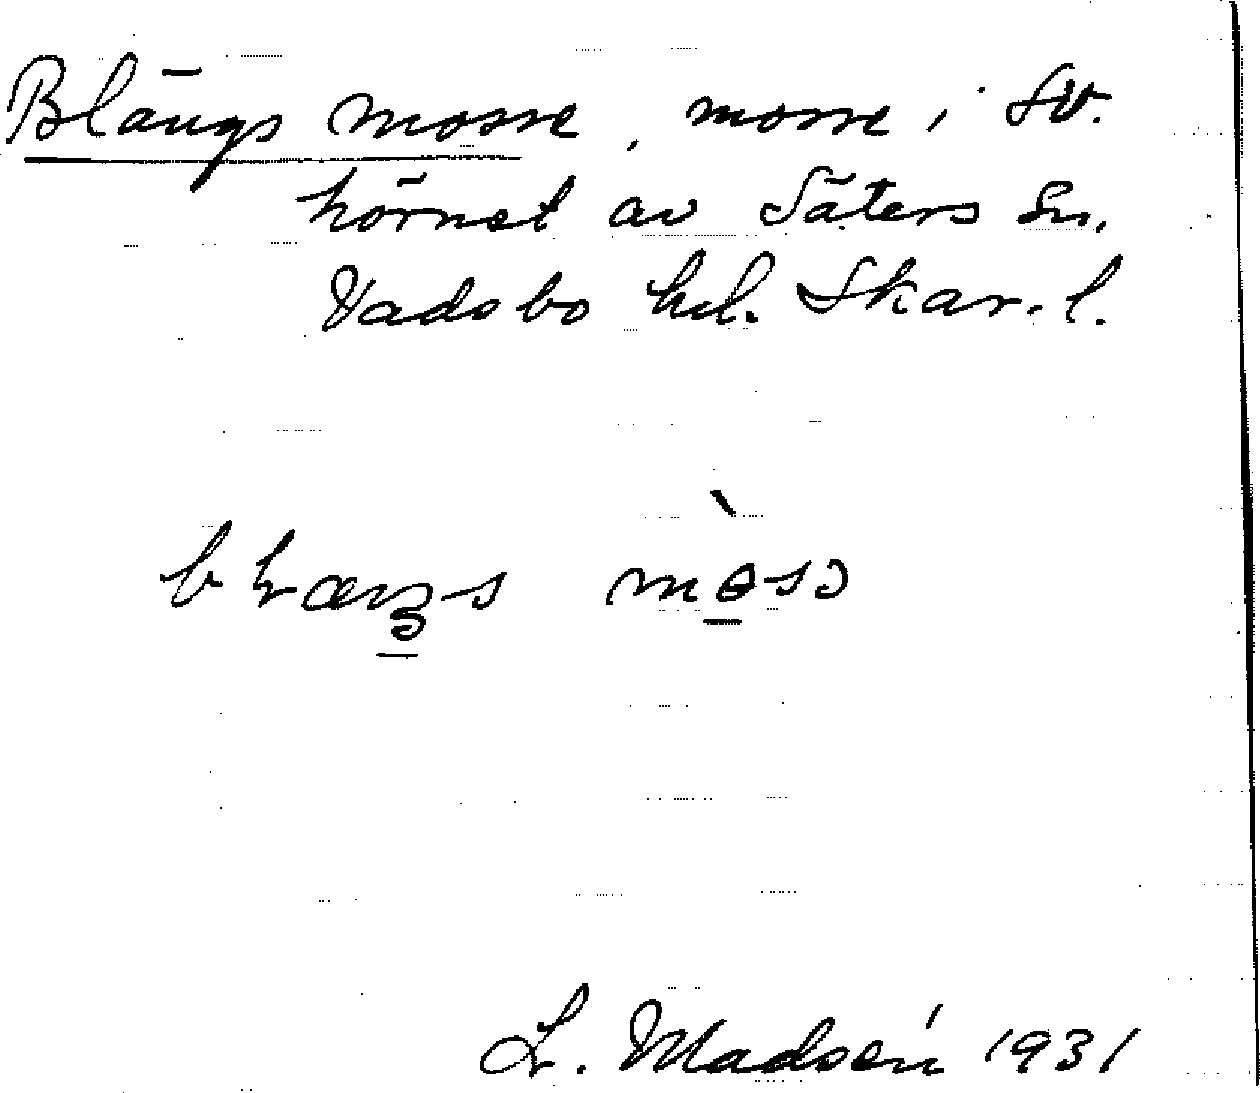 Blängs mosse, mosse i SV.
hörnet av Säters sn,
Vadsbo hd. Skar. l.
L. Madsén 1931